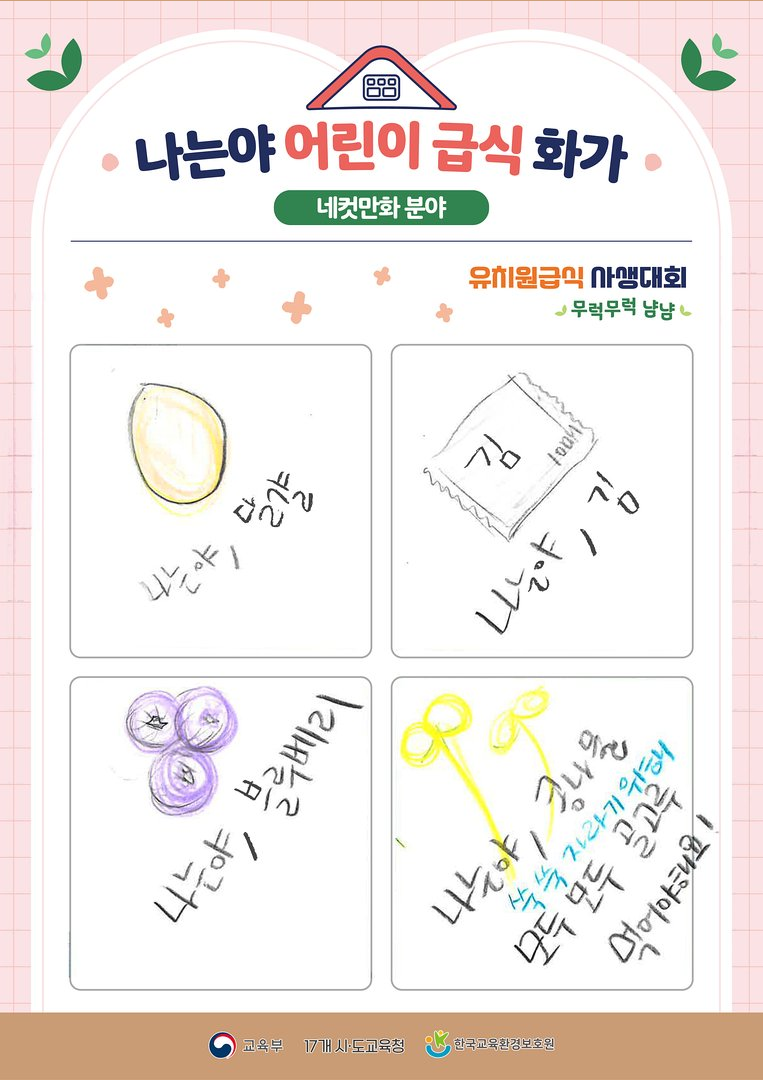 나는야 어린이 급식 화가
네컷만화 분야
유치원급식 사생대회
무럭무럭 냠냠
달걀
나는야!
김
100% 
나는야! 김
나는야! 블루베리
나는야! 콩나물
쑥쑥 자라기 위해
모두 모두 골고루
먹어야해요!
교육부
17개 시·도교육청
한국교육환경보호원